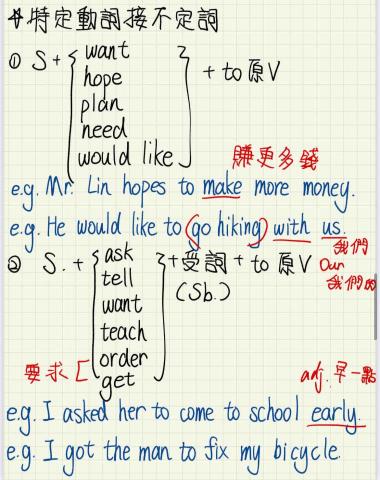 特定動詞接不定詞
① S + { want
hope
plan
need
would like } + to 原V
賺更多錢
e.g. Mr. Lin hopes to make more money.
e.g. He would like to (go hiking) with us.
我們
Our
我們的
② S. + { ask
tell
want
teach
order
get } + 受詞 + to 原V
(Sb.)
要求 [
adj. 早一點
e.g. I asked her to come to school early.
e.g. I got the man to fix my bicycle.